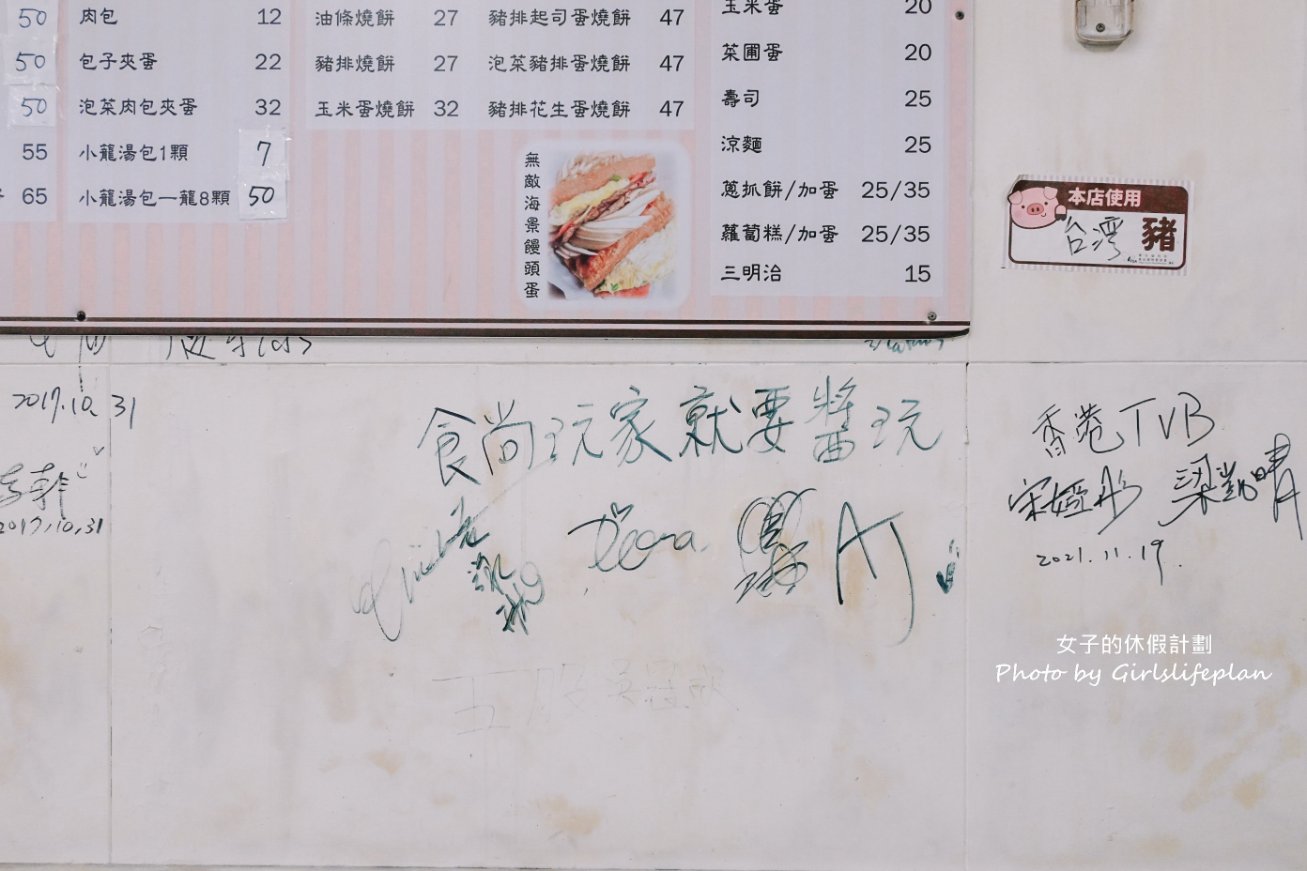 50
50
50
55
65
肉包 12
包子夾蛋 22
泡菜肉包夾蛋 32
小籠湯包1顆 7
小籠湯包一籠8顆 50
油條燒餅 27
豬排燒餅 27
玉米蛋燒餅 32
豬排起司蛋燒餅 47
泡菜豬排蛋燒餅 47
豬排花生蛋燒餅 47
無敵海景饅頭蛋
玉米蛋 20
菜圃蛋 20
壽司 25
涼麵 25
蔥抓餅/加蛋 25/35
蘿蔔糕/加蛋 25/35
三明治 15
本店使用
台灣 豬
2017.10.31
2017.10.31
食尚玩家就要醬玩
AJ
香港TVB
2021.11.19.
女子的休假計劃
Photo by Girlslifeplan